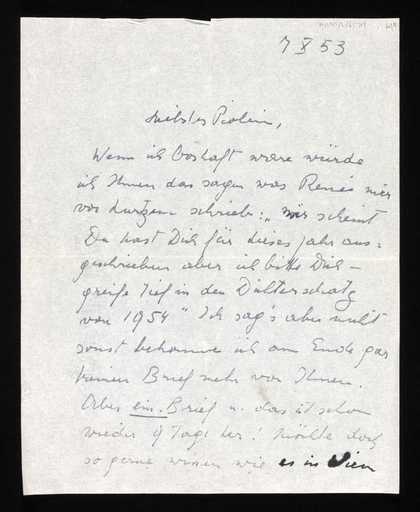 7 X 53
Liebstes
Wenn ich boshaft wäre würde
ich Ihnen das sagen was Renée mir
vor kurzem schrieb: „mir scheint
Du hast Dich für dieses Jahr aus=
geschrieben aber ich bitte Dich –
greife tief in den Dichterschatz
von 1954" Ich sag's aber nicht
sonst bekomme ich am Ende gar
keinen Brief mehr von Ihnen.
Aber ein Brief u. das ist schon
wieder 9 Tage her! Möchte doch
so gerne wissen wie es in Wien